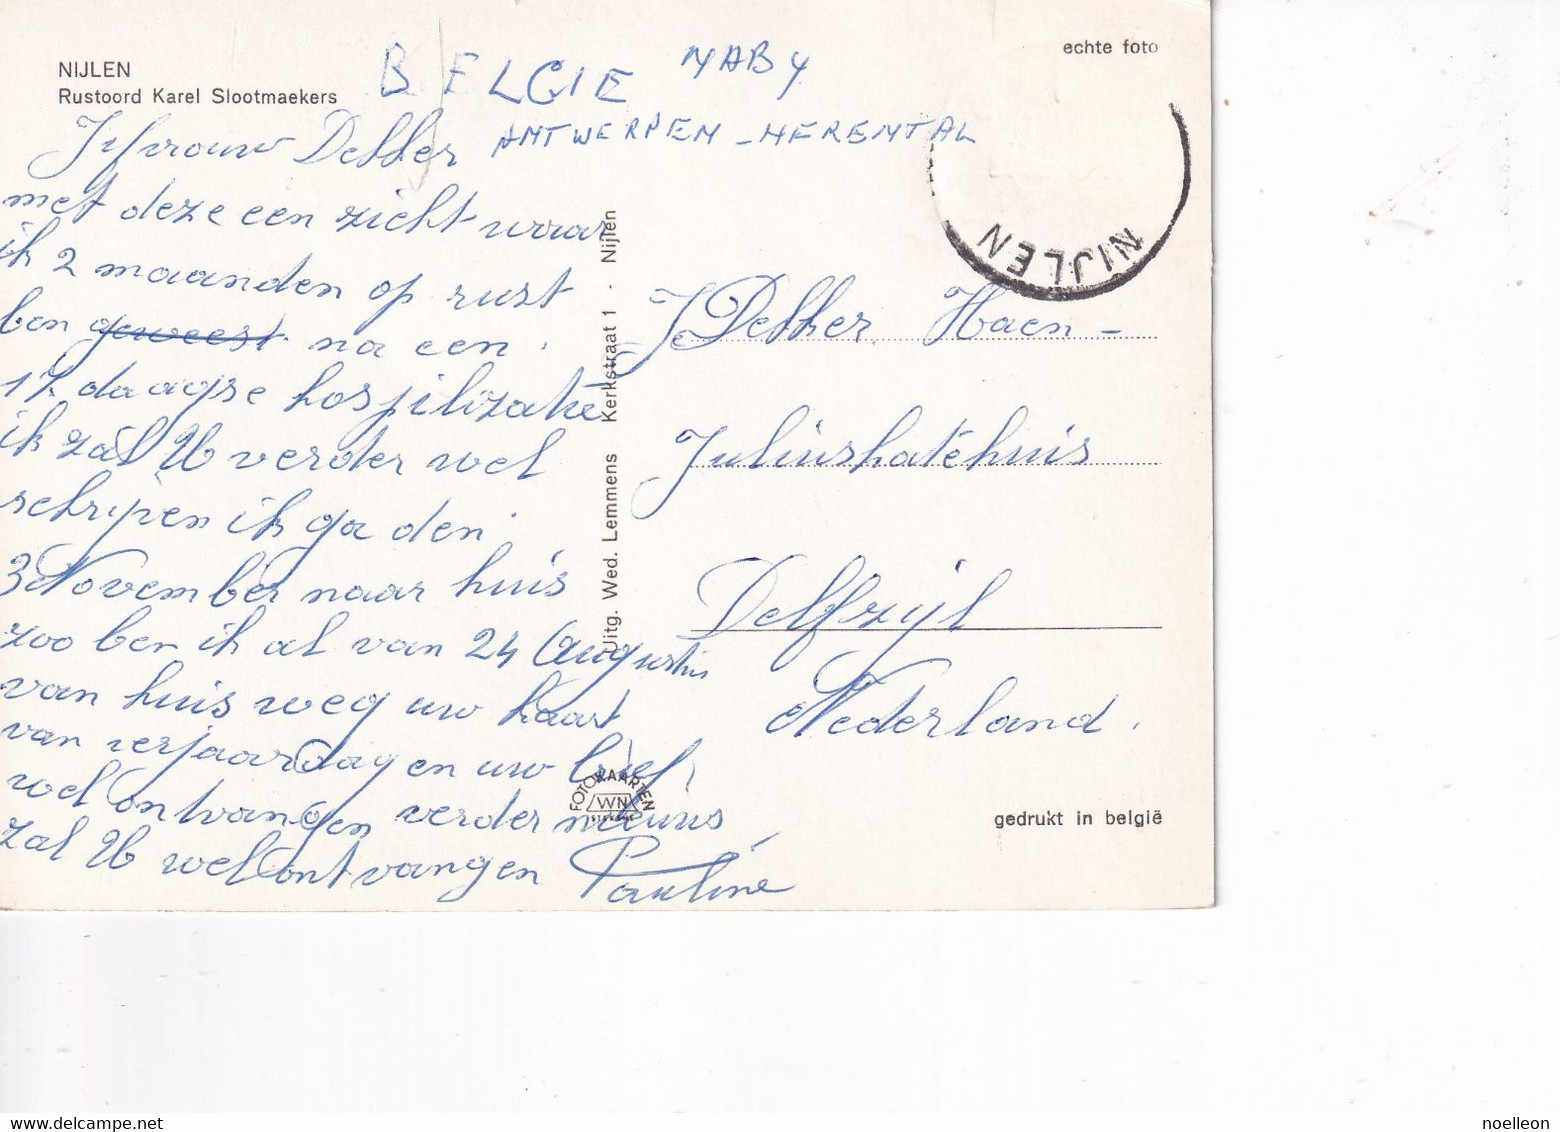 NIJLEN
Rustoord Karel Slootmaekers
BELGIE
echte foto
ANTWERPEN - HERENTAL
NIJLEN
Jufvrouw Dekker
met deze een zicht waar
ik 2 maanden op rust
ben geweest na een
daagse
ik zal U verder wel
schrijven ik ga den
3 November naar huis
zoo ben ik al van 24 Augustus
van huis weg uw kaart
van verjaardag en uw brief
wel ontvangen verder nieuws
zal U wel ontvangen Pauline
Uitg. Wed. Lemmens Kerkstraat 1 - Nijlen
Dekker Haen-
Delfzijl
Nederland.
FOTOKAARTEN
WN
gedrukt in belgië
delcampe.net
noelleon